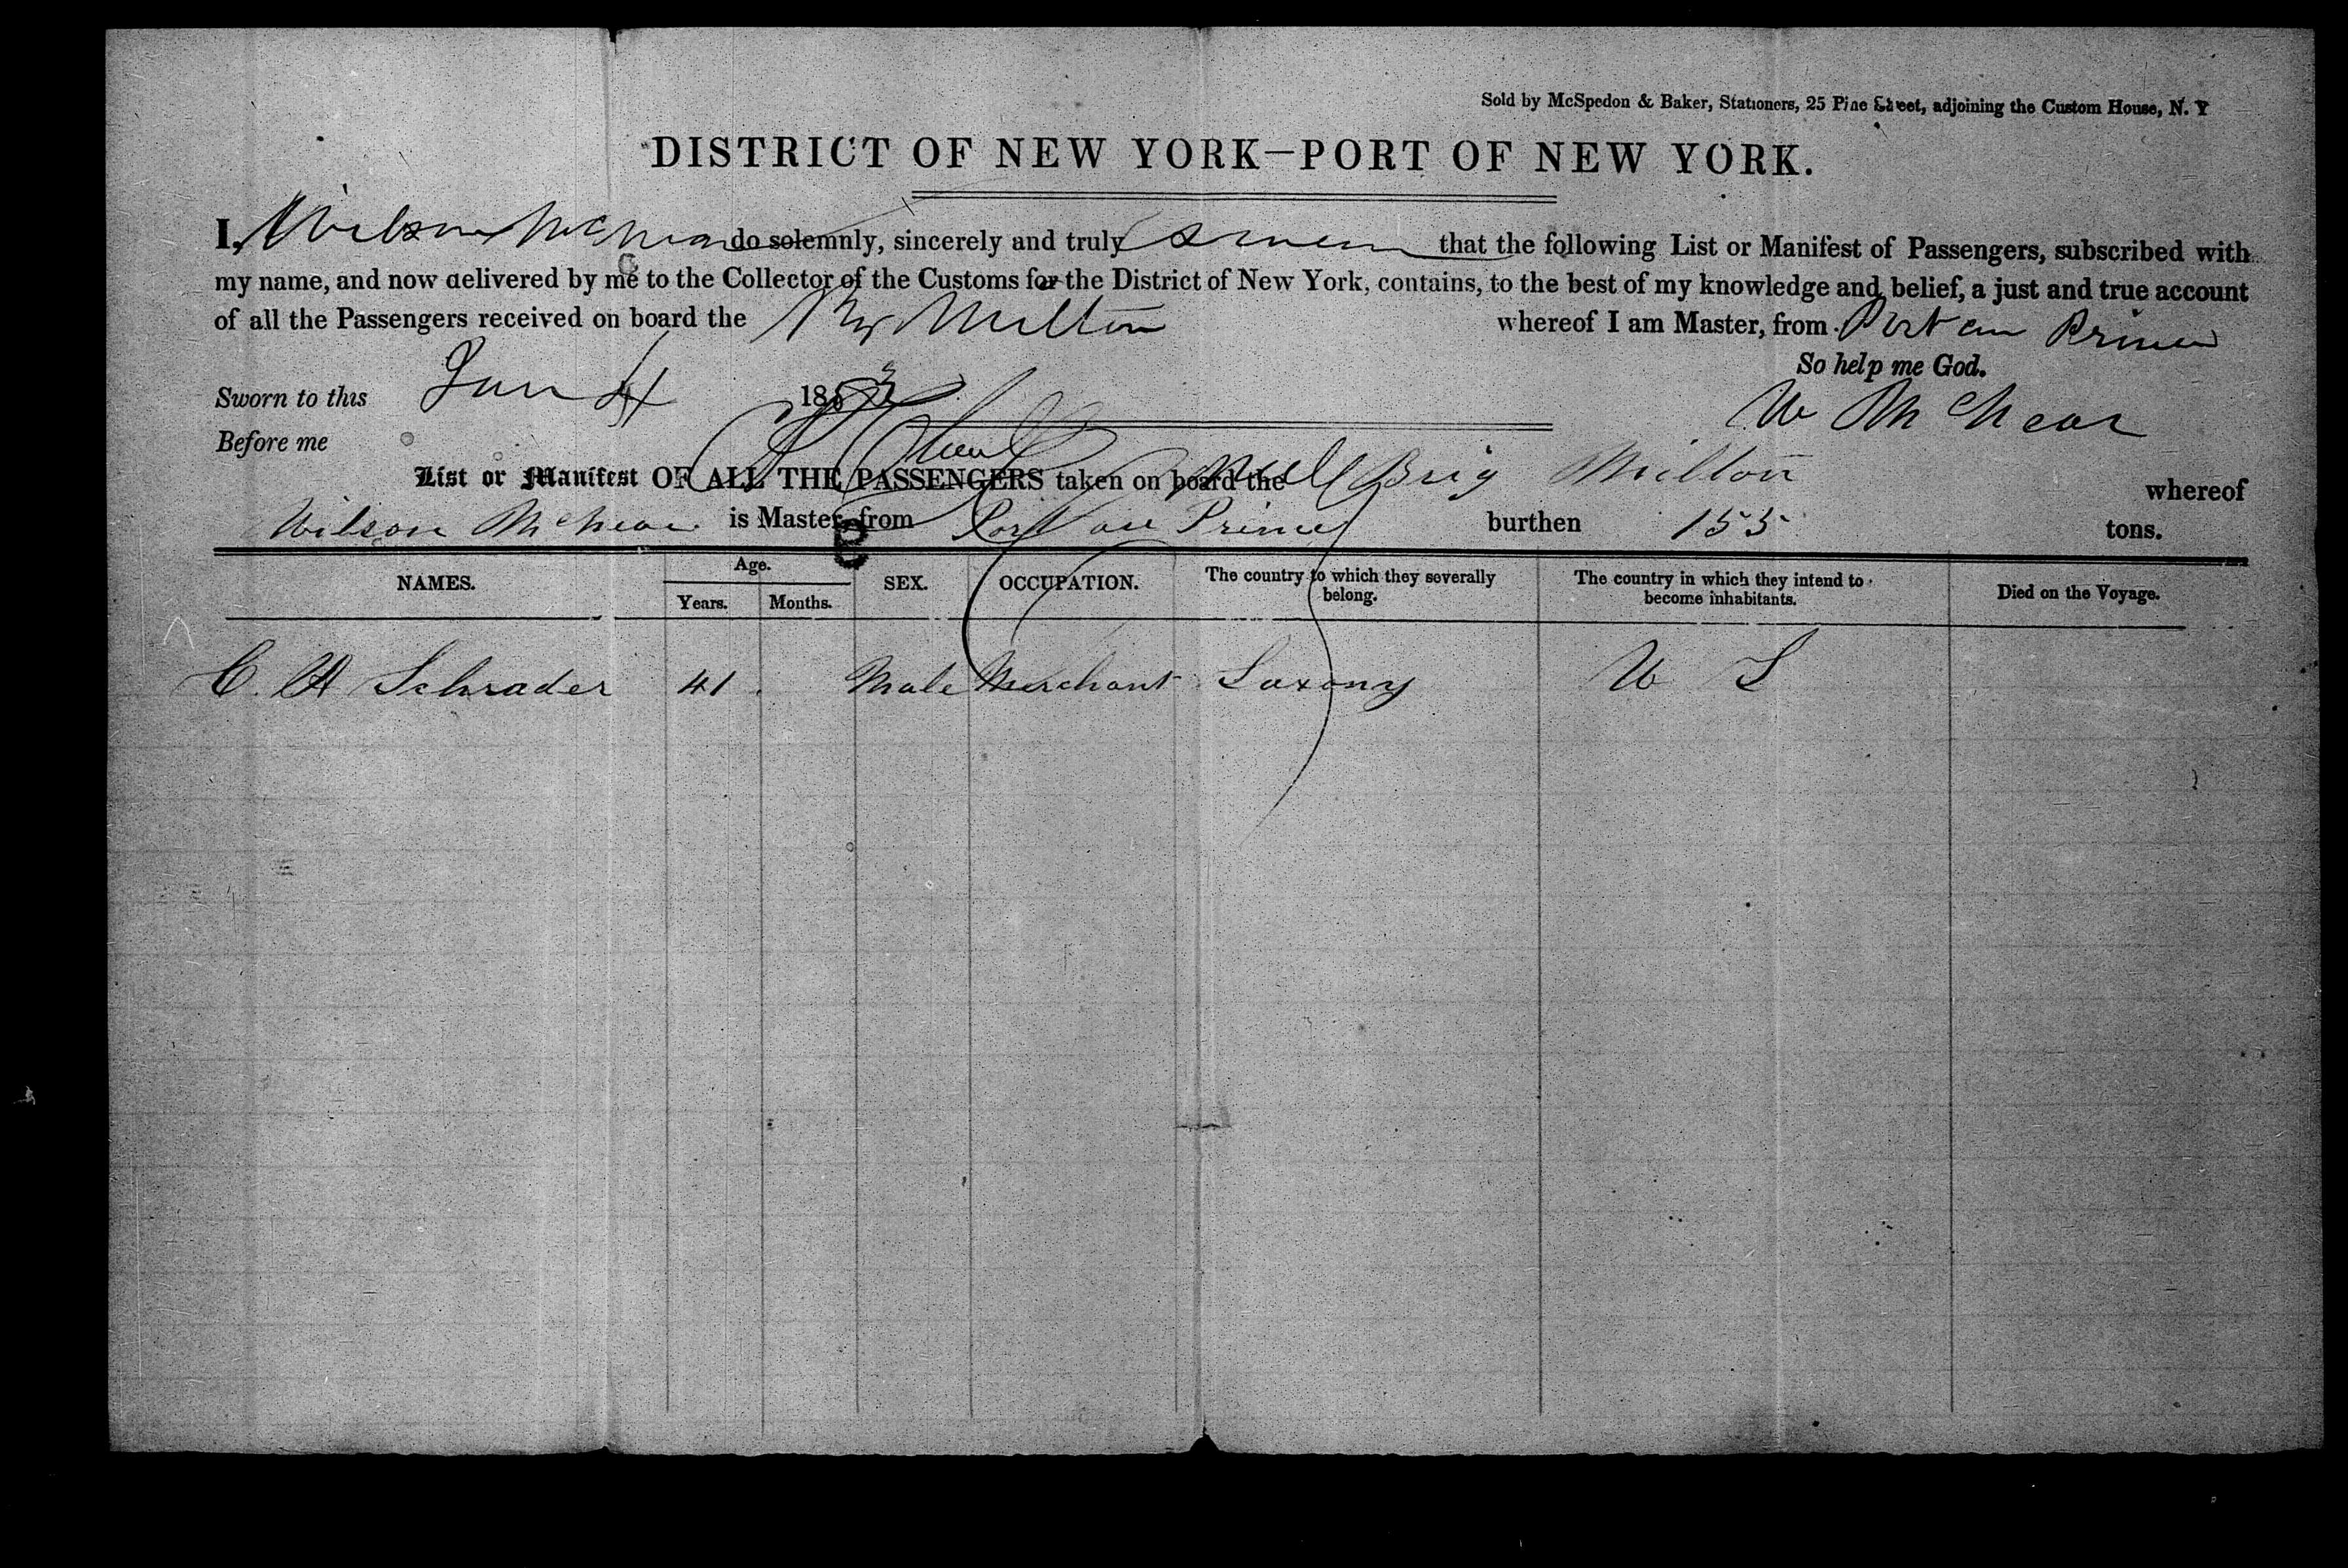 Sold by McSpedon & Baker, Stationers, 25 Pine Street, adjoining the Custom House, N. Y
DISTRICT OF NEW YORK—PORT OF NEW YORK.
I, Wilson McNear do solemnly, sincerely and truly swear that the following List or Manifest of Passengers, subscribed with
my name, and now delivered by me to the Collector of the Customs for the District of New York, contains, to the best of my knowledge and belief, a just and true account
of all the Passengers received on board the Brig Milton whereof I am Master, from Port au Prince
So help me God.
Sworn to this Jan 4 1853
W McNear
Before me
List or Manifest OF ALL THE PASSENGERS taken on board the Brig Milton whereof
Wilson McNear is Master, from Port au Prince burthen 155 tons.
NAMES. Age. Years. Months. SEX. OCCUPATION. The country to which they severally belong. The country in which they intend to become inhabitants. Died on the Voyage.
C. A Schrader 41 Male Merchant Saxony U S